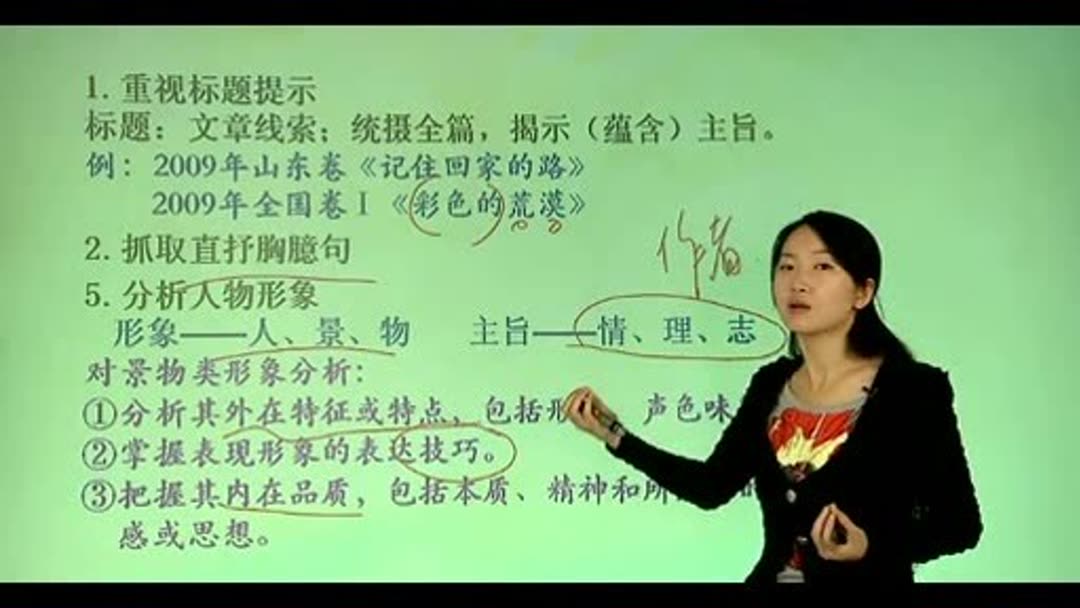 1. 重视标题提示
标题：文章线索；统摄全篇，揭示（蕴含）主旨。
例：2009年山东卷《记住回家的路》
2009年全国卷Ⅰ《彩色的荒漠》
作者
2. 抓取直抒胸臆句
5. 分析人物形象
形象——人、景、物 主旨——情、理、志
对景物类形象分析：
①分析其外在特征或特点，包括形 声色味
②掌握表现形象的表达技巧。
③把握其内在品质，包括本质、精神和所 的
感或思想。